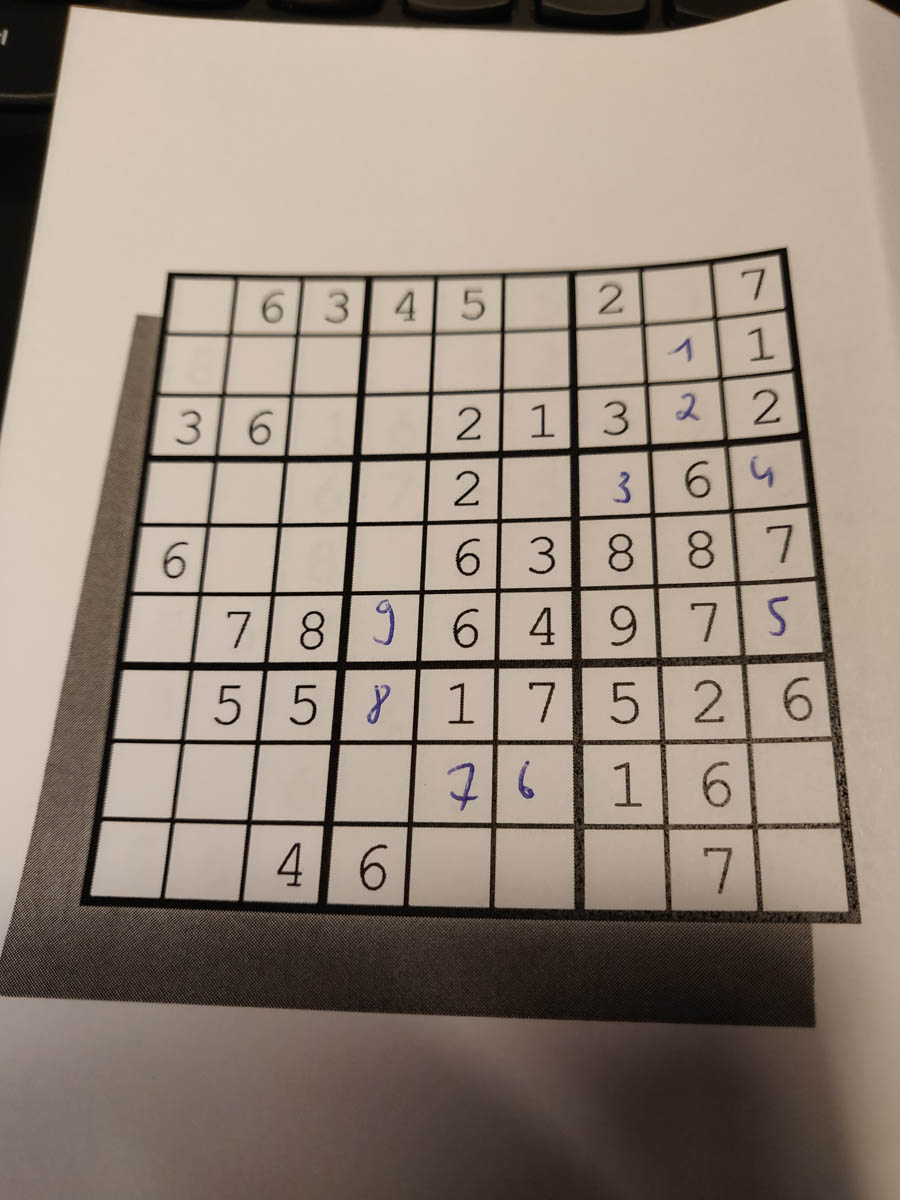 6 3 4 5 2 7
1 1
3 6 2 1 3 2 2
2 3 6 4
6 6 3 8 8 7
7 8 9 6 4 9 7 5
5 5 8 1 7 5 2 6
7 6 1 6
4 6 7